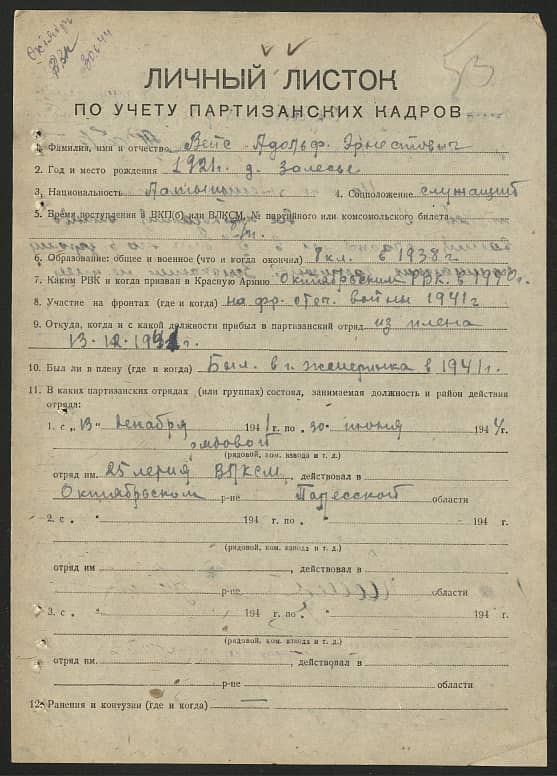 Октябрь
30.6.44
ЛИЧНЫЙ ЛИСТОК
ПО УЧЕТУ ПАРТИЗАНСКИХ КАДРОВ
1. Фамилия, имя и отчество Вейс Адольф Эрнестович
2. Год и место рождения 1921 г. д. Залесье
3. Национальность Латыш 4. Соцположение служащий
5. Время поступления в ВКП(б) или ВЛКСМ, № партийного или комсомольского билета
б/п.
6. Образование: общее и военное (что и когда окончил) 8 кл. в 1938 г
7. Каким РВК и когда призван в Красную Армию Октябрьским РВК. в г.
8. Участие на фронтах (где и когда) на фр. отеч. войны 1941 г
9. Откуда, когда и с какой должности прибыл в партизанский отряд из плена
13.12.1941 г.
10. Был ли в плену (где и когда) Был. в г. жмеринка в 1941 г.
11. В каких партизанских отрядах (или группах) состоял, занимаемая должность и район действия
отряда:
1. с „13" декабря 1941 г. по „30" июня 1944 г.
рядовой
(рядовой, ком. взвода и т. д.)
отряд им. 25 летия ВЛКСМ, действовал в
Октябрьском р-не Полесской области
2. с „ " 194 г. по „ " 194 г.
(рядовой, ком. взвода и т. д.)
отряд им , действовал в
р-не области
3. с „ " 194 г. по „ " 194 г.
(рядовой, ком. взвода и т. д.)
отряд им. , действовал в
р-не области
12. Ранения и контузии (где и когда) —